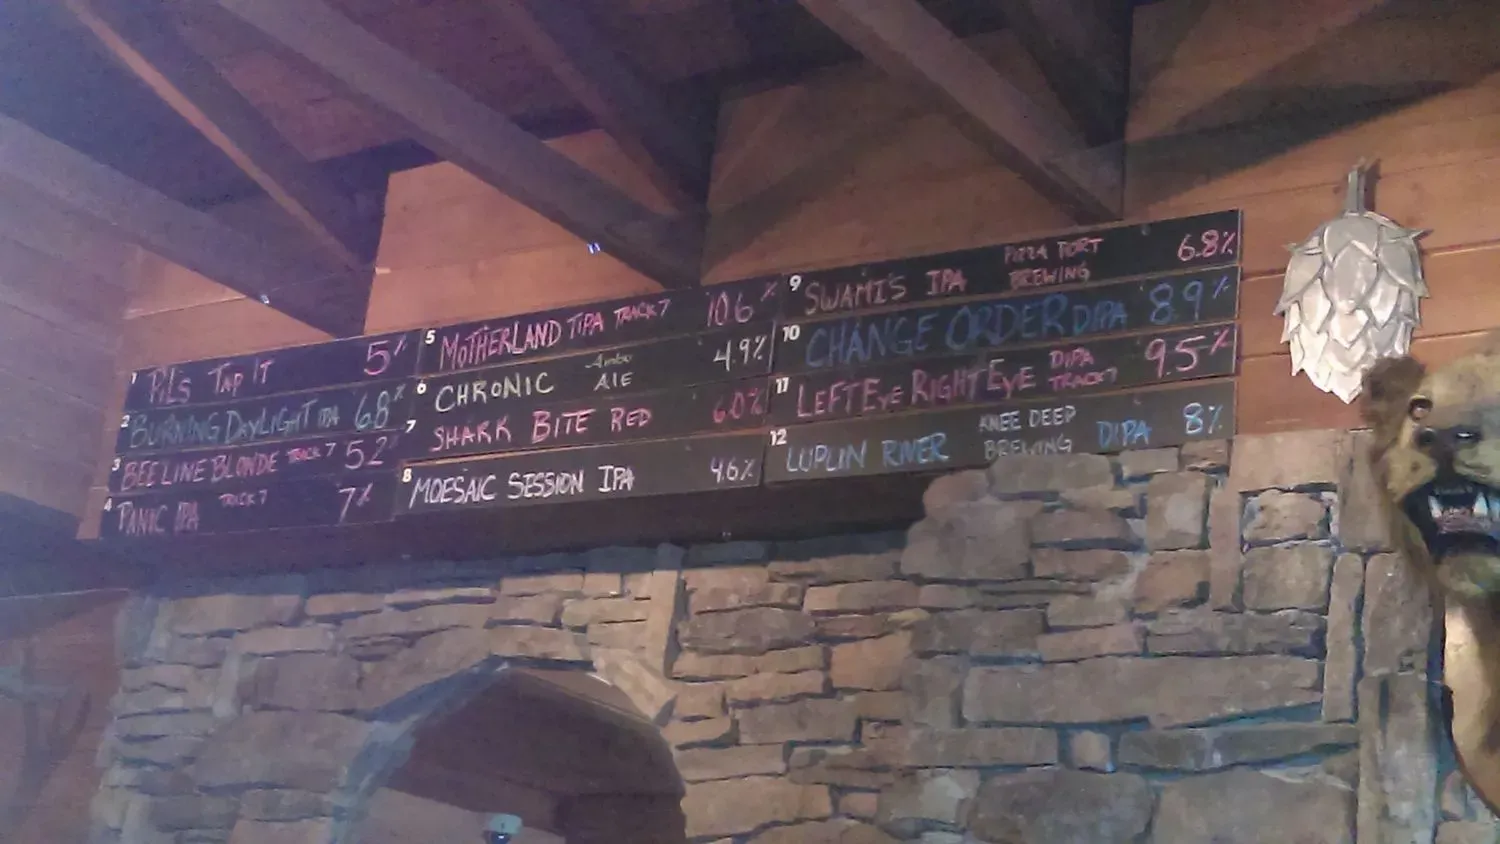 1 PILS TAP IT 5%
2 BURNING DAYLIGHT IPA 6.8%
3 BEELINE BLONDE TRACK 7 5.2%
4 PANIC IPA TRACK 7 7%
5 MOTHERLAND TIPA TRACK 7 10.6%
6 CHRONIC Amber ALE 4.9%
7 SHARK BITE RED 6.0%
8 MOESAIC SESSION IPA 4.6%
9 SWAMI'S IPA PIZZA PORT BREWING 6.8%
10 CHANGE ORDER DIPA 8.9%
11 LEFT EYE RIGHT EYE DIPA TRACK 7 9.5%
12 LUPLIN RIVER KNEE DEEP BREWING DIPA 8%